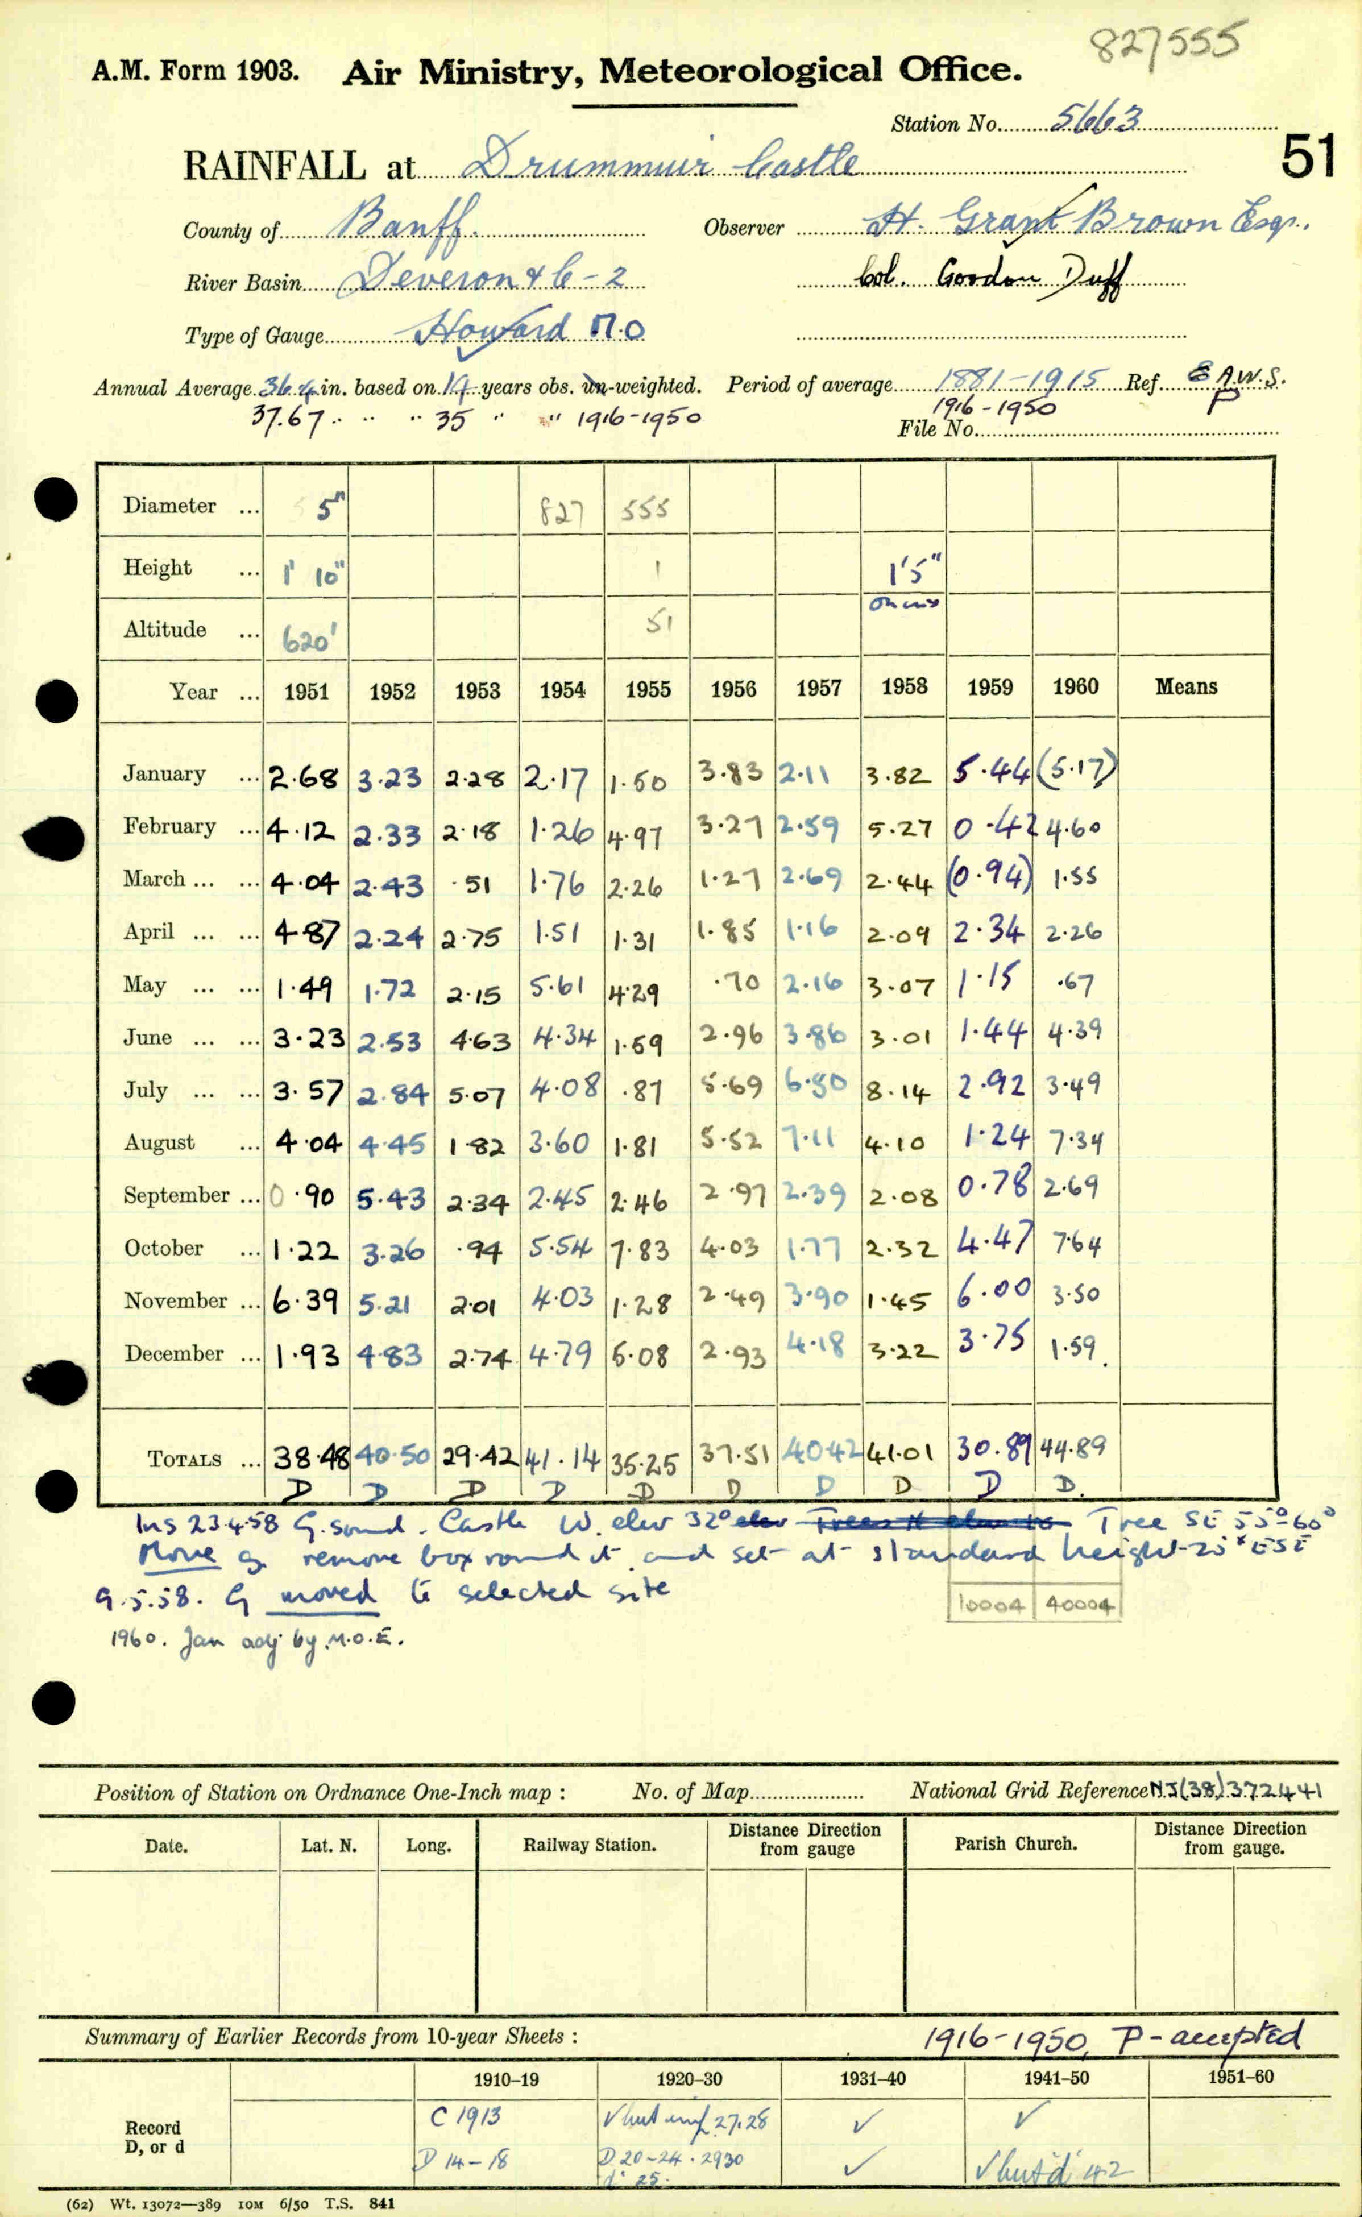 827555
A.M. Form 1903. Air Ministry, Meteorological Office.
Station No. 5663
51
RAINFALL at Drummuir Castle
County of Banff. Observer H. Grant Brown Esqr.
River Basin Deveron & C-2 Col. Gordon Duff
Type of Gauge Howard M.O
Annual Average 36.4 in. based on 19 years obs. un-weighted. Period of average 1881-1915 Ref. E A.W.S.
37.67 " " " 35 " " 1916-1950 1916-1950 P
File No.
Diameter ... 5" 827 555
Height ... 1' 10" 1 1'5"
Altitude ... 620' 51
Year ... 1951 1952 1953 1954 1955 1956 1957 1958 1959 1960 Means
January ... 2.68 3.23 2.28 2.17 1.50 3.83 2.11 3.82 5.44 (5.17)
February ... 4.12 2.33 2.18 1.26 4.97 3.27 2.59 5.27 0.42 4.60
March ... ... 4.04 2.43 .51 1.76 2.26 1.27 2.69 2.44 (0.94) 1.55
April ... ... 4.87 2.24 2.75 1.51 1.31 1.85 1.16 2.09 2.34 2.26
May ... ... 1.49 1.72 2.15 5.61 4.29 .70 2.16 3.07 1.15 .67
June ... ... 3.23 2.53 4.63 4.34 1.59 2.96 3.86 3.01 1.44 4.39
July ... ... 3.57 2.84 5.07 4.08 .87 5.69 6.50 8.14 2.92 3.49
August ... 4.04 4.45 1.82 3.60 1.81 5.52 7.11 4.10 1.24 7.34
September ... 0.90 5.43 2.34 2.45 2.46 2.97 2.39 2.08 0.78 2.69
October ... 1.22 3.26 .94 5.54 7.83 4.03 1.77 2.32 4.47 7.64
November ... 6.39 5.21 2.01 4.03 1.28 2.49 3.90 1.45 6.00 3.50
December ... 1.93 4.83 2.74 4.79 5.08 2.93 4.18 3.22 3.75 1.59
TOTALS ... 38.48 40.50 29.42 41.14 35.25 37.51 40.42 41.01 30.89 44.89
D D D D D D D D D D.
Ins 23.4.58 G. sound. Castle W. elev 32° elev Trees N elev Tree SE 55°-60°
Move g. remove box round it and set at standard height 25x ESE
9.5.58. G moved to selected site
10004 40004
1960. Jan adj by M.O.E.
Position of Station on Ordnance One-Inch map : No. of Map National Grid Reference NJ(38)372441
Date. Lat. N. Long. Railway Station. Distance Direction from gauge Parish Church. Distance Direction from gauge.
Summary of Earlier Records from 10-year Sheets : 1916-1950, P-accepted
1910-19 1920-30 1931-40 1941-50 1951-60
Record D, or d
C 1913 ✓ but 27.28 ✓ ✓
D 14-18 D 20-24. 2930 ✓ ✓ but 'd' 42
d' 25.
(62) Wt. 13072—389 10M 6/50 T.S. 841